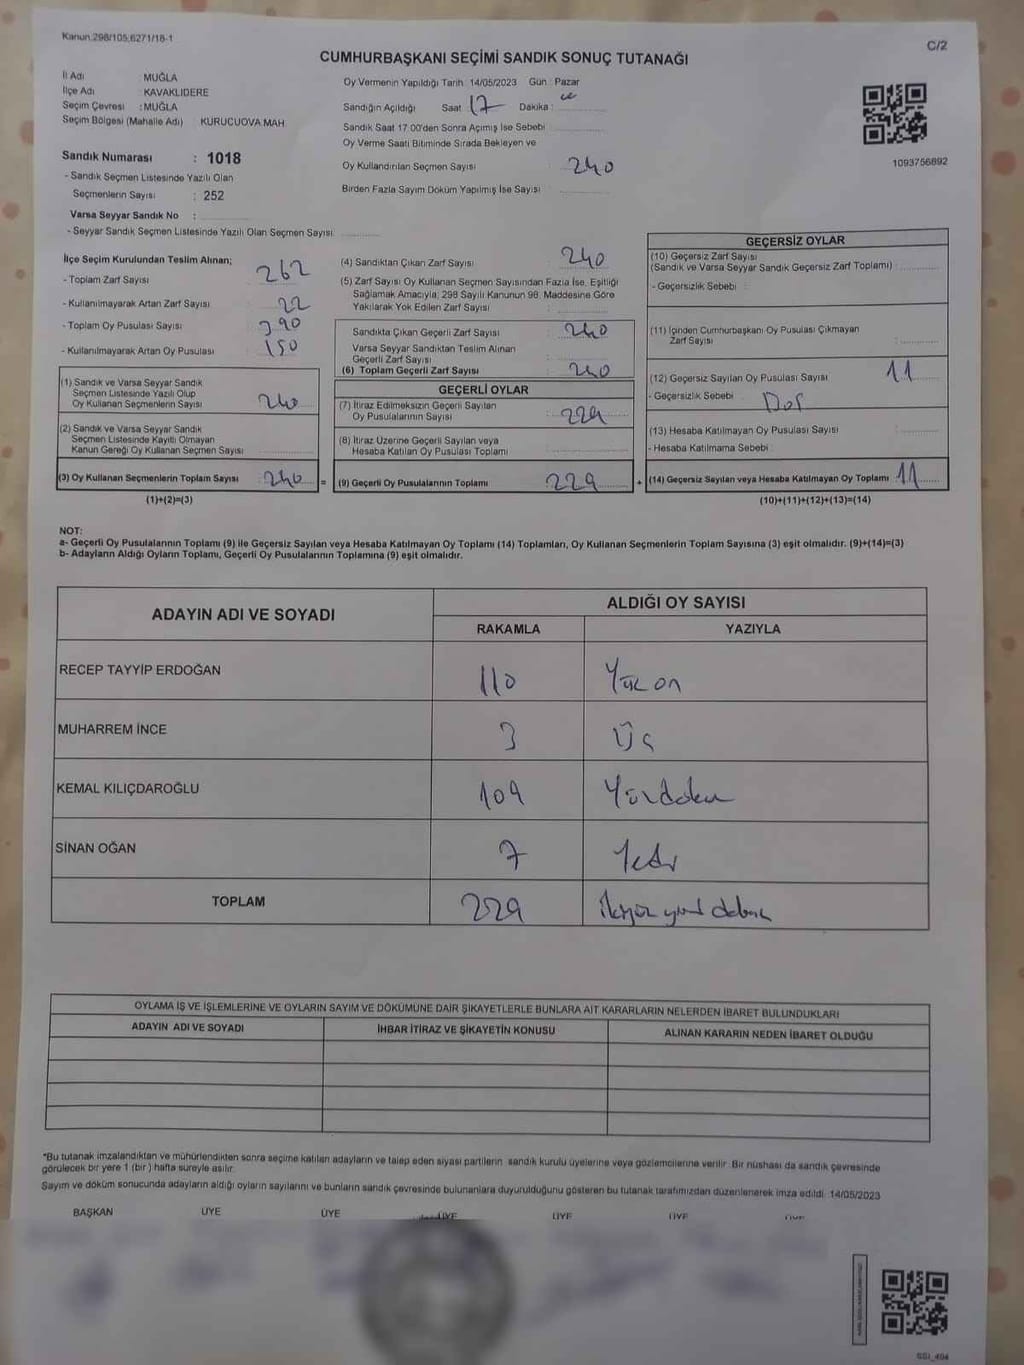 Kanun.298/105,6271/18-1
C/2
CUMHURBAŞKANI SEÇİMİ SANDIK SONUÇ TUTANAĞI
İl Adı : MUĞLA
İlçe Adı : KAVAKLIDERE
Seçim Çevresi : MUĞLA
Seçim Bölgesi (Mahalle Adı) KURUCUOVA MAH.
Sandık Numarası : 1018
- Sandık Seçmen Listesinde Yazılı Olan
Seçmenlerin Sayısı : 252
Varsa Seyyar Sandık No :
- Seyyar Sandık Seçmen Listesinde Yazılı Olan Seçmen Sayısı
Oy Vermenin Yapıldığı Tarih 14/05/2023 Gün : Pazar
Sandığın Açıldığı Saat 17 Dakika :
Sandık Saat 17:00'den Sonra Açımış İse Sebebi
Oy Verme Saati Bitiminde Sırada Bekleyen ve
Oy Kullandırılan Seçmen Sayısı 240
Birden Fazla Sayım Döküm Yapılmış İse Sayısı
1093756892
İlçe Seçim Kurulundan Teslim Alınan;
- Toplam Zarf Sayısı 262
- Kullanılmayarak Artan Zarf Sayısı 22
- Toplam Oy Pusulası Sayısı 390
- Kullanılmayarak Artan Oy Pusulası 150
(1) Sandık ve Varsa Seyyar Sandık
Seçmen Listesinde Yazılı Olup
Oy Kullanan Seçmenlerin Sayısı 240
(2) Sandık ve Varsa Seyyar Sandık
Seçmen Listesinde Kayıtlı Olmayan
Kanun Gereği Oy Kullanan Seçmen Sayısı
(3) Oy Kullanan Seçmenlerin Toplam Sayısı 240 =
(1)+(2)=(3)
(4) Sandıktan Çıkan Zarf Sayısı 240
(5) Zarf Sayısı Oy Kullanan Seçmen Sayısından Fazla İse, Eşitliği
Sağlamak Amacıyla; 298 Sayılı Kanunun 98. Maddesine Göre
Yakılarak Yok Edilen Zarf Sayısı
Sandıkta Çıkan Geçerli Zarf Sayısı 240
Varsa Seyyar Sandıktan Teslim Alınan
Geçerli Zarf Sayısı
(6) Toplam Geçerli Zarf Sayısı 240
GEÇERLİ OYLAR
(7) İtiraz Edilmeksizin Geçerli Sayılan
Oy Pusulalarının Sayısı 229
(8) İtiraz Üzerine Geçerli Sayılan veya
Hesaba Katılan Oy Pusulası Toplamı
(9) Geçerli Oy Pusulalarının Toplamı 229 +
GEÇERSİZ OYLAR
(10) Geçersiz Zarf Sayısı
(Sandık ve Varsa Seyyar Sandık Geçersiz Zarf Toplamı) :
- Geçersizlik Sebebi :
(11) İçinden Cumhurbaşkanı Oy Pusulası Çıkmayan
Zarf Sayısı :
(12) Geçersiz Sayılan Oy Pusulası Sayısı 11
- Geçersizlik Sebebi
(13) Hesaba Katılmayan Oy Pusulası Sayısı
- Hesaba Katılmama Sebebi
(14) Geçersiz Sayılan veya Hesaba Katılmayan Oy Toplamı 11
(10)+(11)+(12)+(13)=(14)
NOT:
a- Geçerli Oy Pusulalarının Toplamı (9) ile Geçersiz Sayılan veya Hesaba Katılmayan Oy Toplamı (14) Toplamları, Oy Kullanan Seçmenlerin Toplam Sayısına (3) eşit olmalıdır. (9)+(14)=(3)
b- Adayların Aldığı Oyların Toplamı, Geçerli Oy Pusulalarının Toplamına (9) eşit olmalıdır.
ADAYIN ADI VE SOYADI ALDIĞI OY SAYISI
RAKAMLA YAZIYLA
RECEP TAYYİP ERDOĞAN 110 Yüz on
MUHARREM İNCE 3 Üç
KEMAL KILIÇDAROĞLU 109 Yüzdokuz
SİNAN OĞAN 7 Yedi
TOPLAM 229 İkiyüz yirmi dokuz
OYLAMA İŞ VE İŞLEMLERİNE VE OYLARIN SAYIM VE DÖKÜMÜNE DAİR ŞİKAYETLERLE BUNLARA AİT KARARLARIN NELERDEN İBARET BULUNDUKLARI
ADAYIN ADI VE SOYADI İHBAR İTİRAZ VE ŞİKAYETİN KONUSU ALINAN KARARIN NEDEN İBARET OLDUĞU
*Bu tutanak imzalandıktan ve mühürlendikten sonra seçime katılan adayların ve talep eden siyasi partilerin sandık kurulu üyelerine veya gözlemcilerine verilir. Bir nüshası da sandık çevresinde
görülecek bir yere 1 (bir) hafta süreyle asılır.
Sayım ve döküm sonucunda adayların aldığı oyların sayılarını ve bunların sandık çevresinde bulunanlara duyurulduğunu gösteren bu tutanak tarafımızdan düzenlenerek imza edildi. 14/05/2023
BAŞKAN ÜYE ÜYE ÜYE ÜYE ÜYE ÜYE